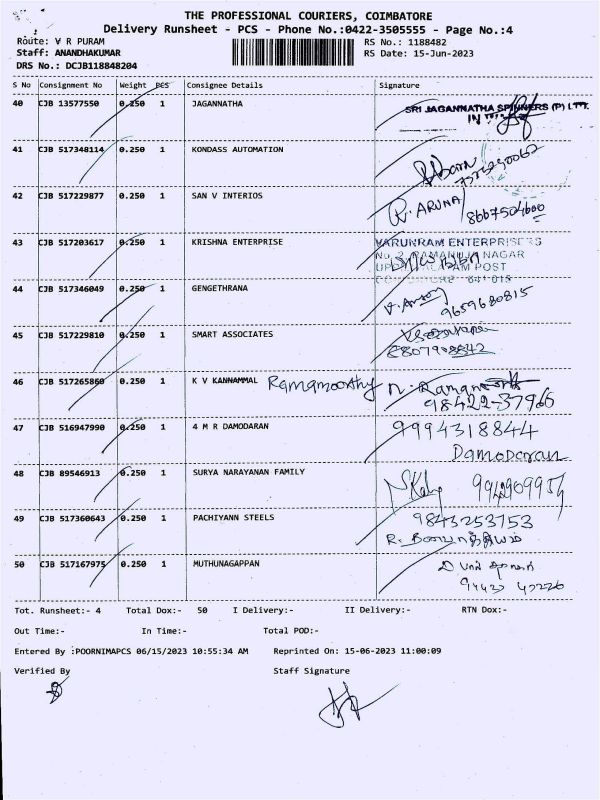 THE PROFESSIONAL COURIERS, COIMBATORE
Delivery Runsheet - PCS - Phone No.:0422-3505555 - Page No.:4
Route: V R PURAM
RS No.: 1188482
Staff: ANANDHAKUMAR
RS Date: 15-Jun-2023
DRS No.: DCJB118848204
S No Consignment No Weight PCS Consignee Details Signature
40 CJB 13577550 0.250 1 JAGANNATHA
SRI JAGANNATHA SPINNERS (P) LTT.
41 CJB 517348114 0.250 1 KONDASS AUTOMATION
42 CJB 517229877 0.250 1 SAN V INTERIOS
R. ARUNA
8667504600
43 CJB 517203617 0.250 1 KRISHNA ENTERPRISE
VARUNRAM ENTERPRISERS
No. 2, RAMANUJA NAGAR
POST
44 CJB 517346049 0.250 1 GENGETHRANA
9659680815
45 CJB 517229810 0.250 1 SMART ASSOCIATES
46 CJB 517265860 0.250 1 K V KANNAMMAL Ramamoorthy
98422-37966
47 CJB 516947990 0.250 1 4 M R DAMODARAN 9994318844
Damodaran
48 CJB 89546913 0.250 1 SURYA NARAYANAN FAMILY
49 CJB 517360643 0.250 1 PACHIYANN STEELS 9843253153
50 CJB 517167975 0.250 1 MUTHUNAGAPPAN
Tot. Runsheet:- 4 Total Dox:- 50 I Delivery:- II Delivery:- RTN Dox:-
Out Time:- In Time:- Total POD:-
Entered By :POORNIMAPCS 06/15/2023 10:55:34 AM Reprinted On: 15-06-2023 11:00:09
Verified By Staff Signature